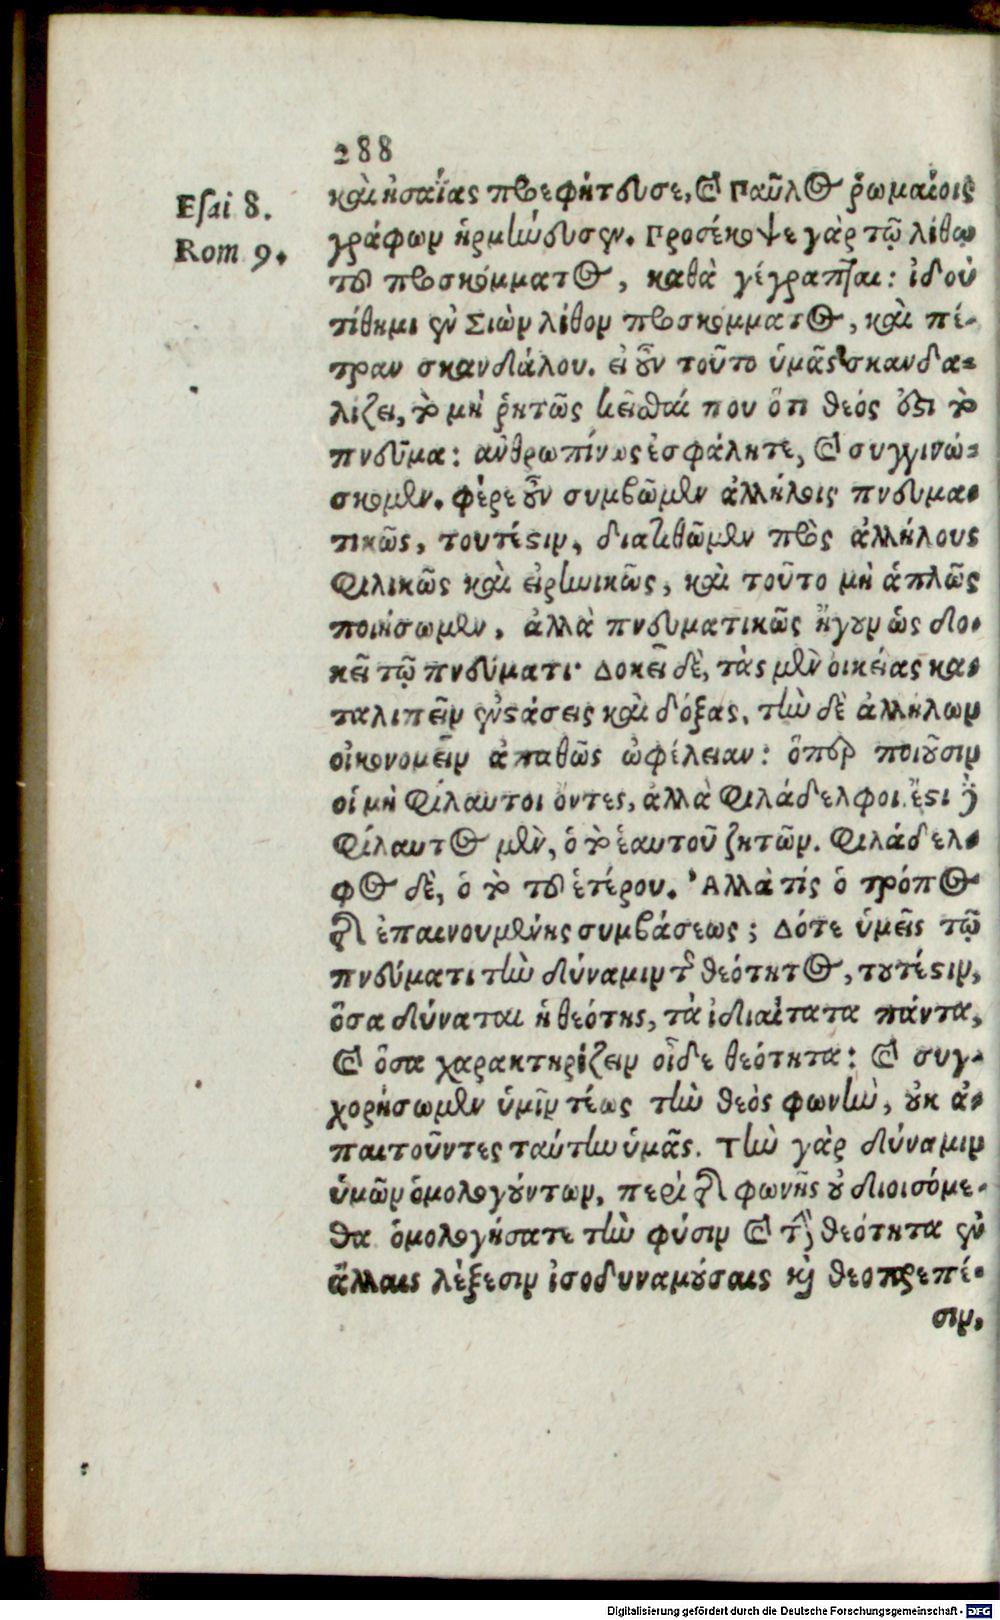 288
Esai 8.
Rom 9.
καὶ ἠσαΐας προεφήτευσε, καὶ Παῦλος ῥωμαίοις
γράφων ἡρμήνευσεν. Προσέκοψε γὰρ τῷ λίθῳ
τοῦ προσκόμματος, καθὰ γέγραπται: ἰδοὺ
τίθημι ἐν Σιὼν λίθον προσκόμματος, καὶ πέ-
τραν σκανδάλου. εἰ οὖν τοῦτο ὑμᾶς σκανδα-
λίζει, τὸ μὴ ῥητῶς κεῖσθαί που ὅτι θεός ἐστι τὸ
πνεῦμα: ἀνθρωπίνως ἐσφάλητε, καὶ συγγινώ-
σκομεν. φέρε οὖν συμβῶμεν ἀλλήλοις πνευμα-
τικῶς, τουτέστιν, διατεθῶμεν πρὸς ἀλλήλους
φιλικῶς καὶ εἰρηνικῶς, καὶ τοῦτο μὴ ἁπλῶς
ποιήσωμεν, ἀλλὰ πνευματικῶς ἤγουν ὡς δο-
κεῖ τῷ πνεύματι. Δοκεῖ δὲ, τὰς μὲν οἰκείας κα-
ταλιπεῖν ἐνστάσεις καὶ δόξας, τὴν δὲ ἀλλήλων
οἰκονομεῖν ἀπαθῶς ὠφέλειαν: ὅπερ ποιοῦσιν
οἱ μὴ φίλαυτοι ὄντες, ἀλλὰ φιλάδελφοι. ἔστι γὰρ
φίλαυτος μὲν, ὁ τὸ ἑαυτοῦ ζητῶν. φιλάδελ-
φος δὲ, ὁ τὸ τοῦ ἑτέρου. Ἀλλὰ τίς ὁ τρόπος
τῆς ἐπαινουμένης συμβάσεως; Δότε ὑμεῖς τῷ
πνεύματι τὴν δύναμιν τῆς θεότητος, τουτέστιν,
ὅσα δύναται ἡ θεότης, τὰ ἰδιαίτατα πάντα,
καὶ ὅσα χαρακτηρίζειν οἶδε θεότητα: καὶ συγ-
χορήσωμεν ὑμῖν τέως τὴν θεὸς φωνὴν, οὐκ ἀ-
παιτοῦντες ταύτην ὑμᾶς. Τὴν γὰρ δύναμιν
ὑμῶν ὁμολογούντων, περὶ τῆς φωνῆς οὐ διοισόμε-
θα ὁμολογήσατε τὴν φύσιν καὶ τὴν θεότητα ἐν
ἄλλαις λέξεσιν ἰσοδυναμούσαις καὶ θεοπρεπέ-
σιν,
Digitalisierung gefördert durch die Deutsche Forschungsgemeinschaft - DFG